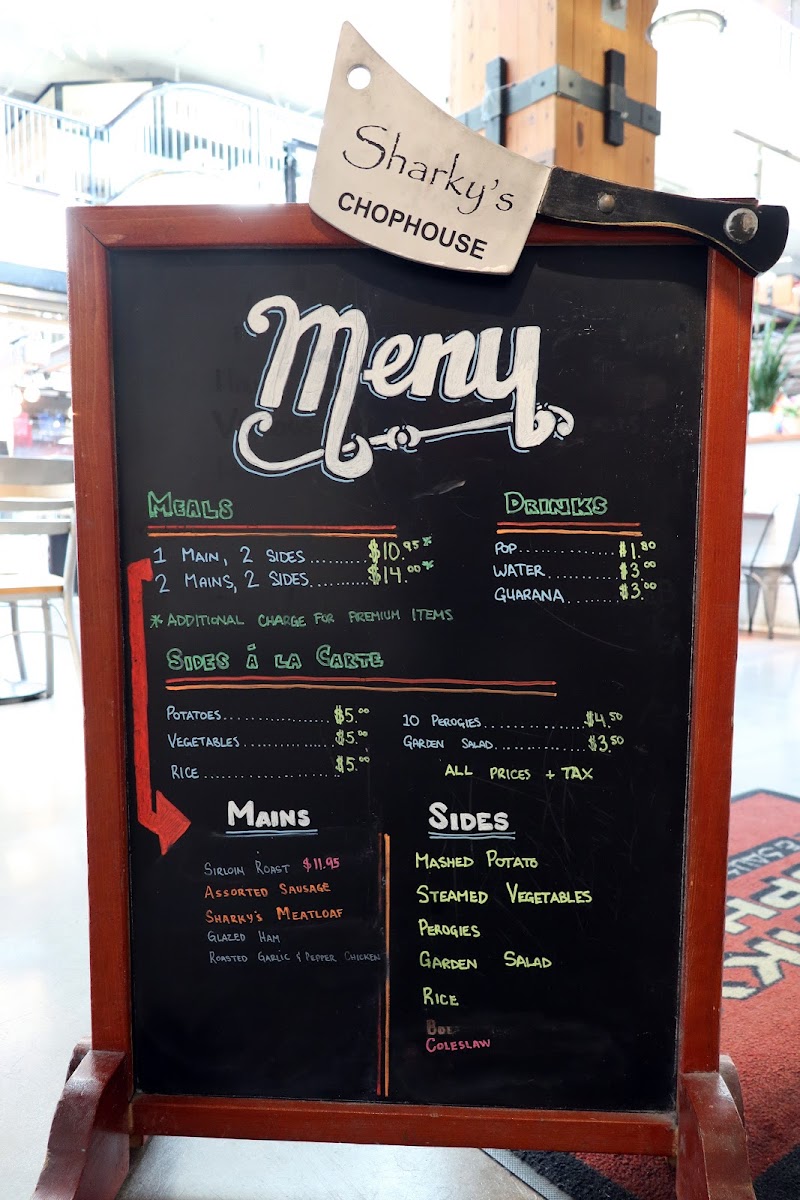 Sharky's
CHOPHOUSE
Menu
MEALS
1 MAIN, 2 SIDES..........$10.95*
2 MAINS, 2 SIDES..........$14.00*
* ADDITIONAL CHARGE FOR PREMIUM ITEMS
DRINKS
POP...............$1.80
WATER............$3.00
GUARANA........$3.00
SIDES À LA CARTE
POTATOES..................$5.00
VEGETABLES...............$5.00
RICE......................$5.00
10 PEROGIES................$4.50
GARDEN SALAD...............$3.50
ALL PRICES + TAX
MAINS
SIRLOIN ROAST $11.95
ASSORTED SAUSAGE
SHARKY'S MEATLOAF
GLAZED HAM
ROASTED GARLIC & PEPPER CHICKEN
SIDES
MASHED POTATO
STEAMED VEGETABLES
PEROGIES
GARDEN SALAD
RICE
COLESLAW